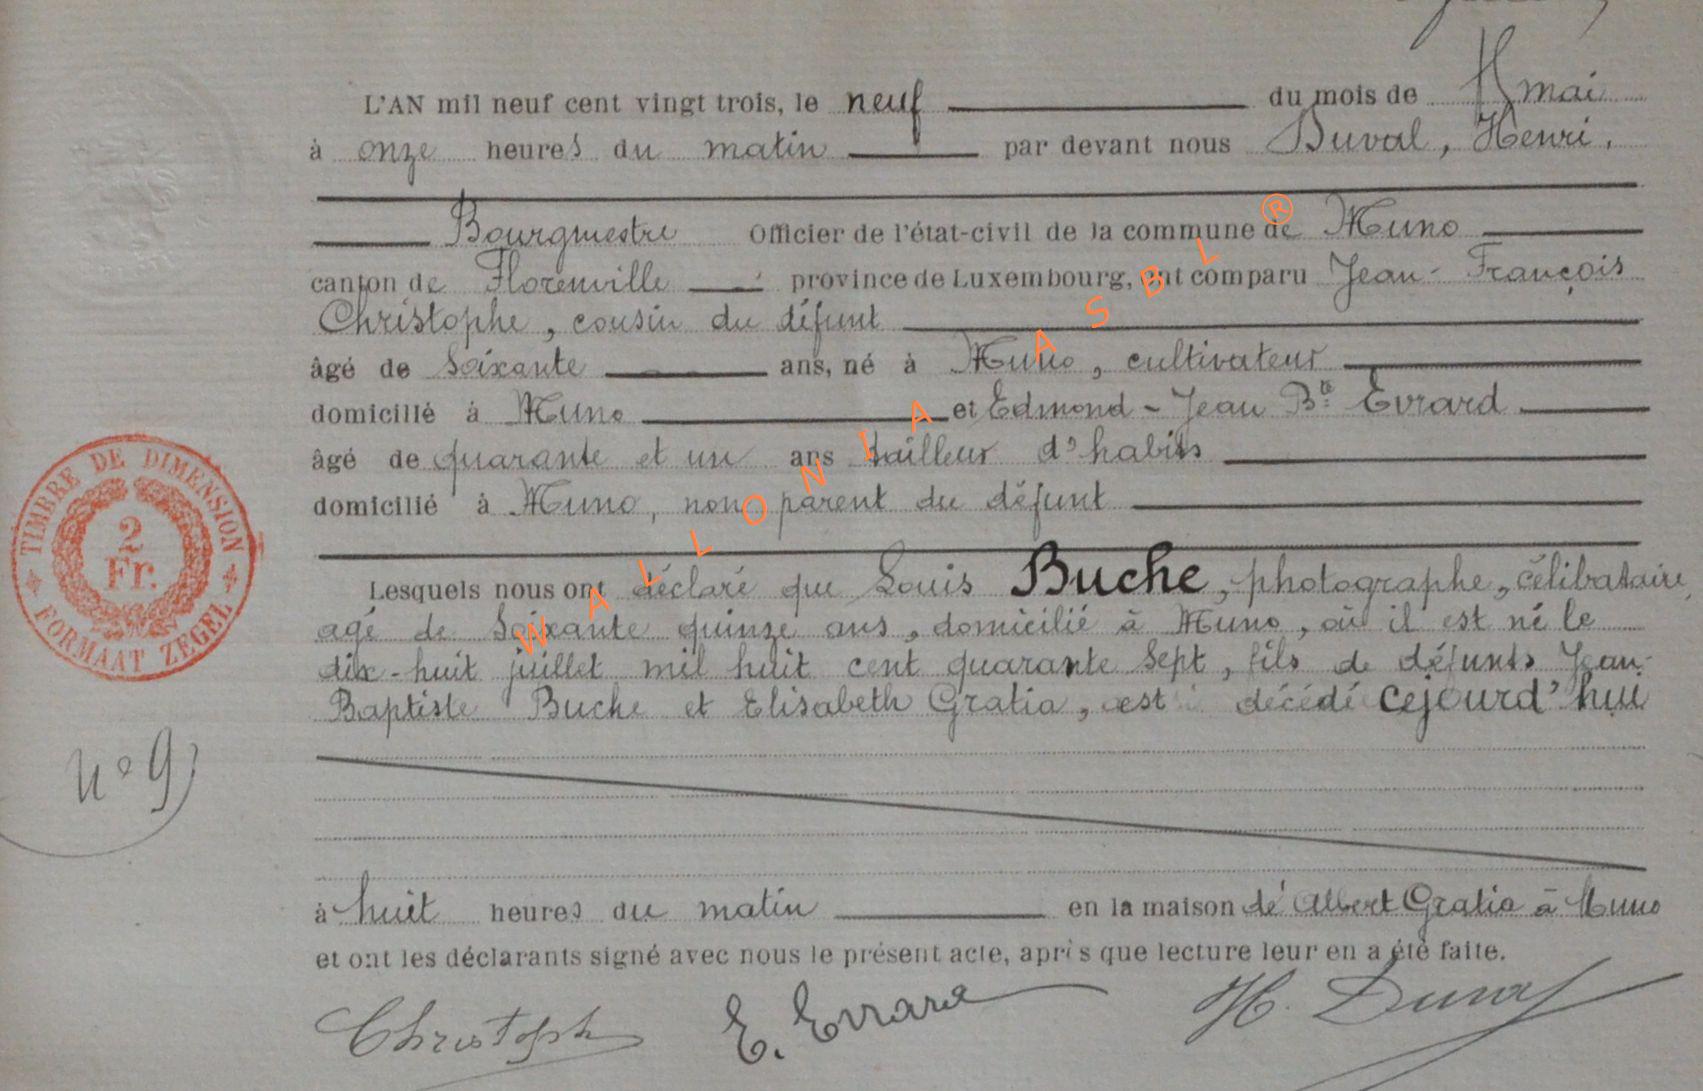 L'AN mil neuf cent vingt trois, le neuf du mois de mai
à onze heures du matin par devant nous Duval, Henri,
Bourgmestre Officier de l'état-civil de la commune de Muno
canton de Florenville province de Luxembourg, ont comparu Jean-François
Christophe, cousin du défunt
âgé de soixante ans, né à Muno, cultivateur
domicilié à Muno et Edmond-Jean Bte Evrard
âgé de quarante et un ans tailleur d'habits
domicilié à Muno, non parent du défunt
Lesquels nous ont déclaré que Louis Buche, photographe, célibataire,
agé de Soixante quinze ans, domicilié à Muno, où il est né le
dix-huit juillet mil huit cent quarante sept, fils de défunts Jean-
Baptiste Buche et Elisabeth Gratia, est décédé cejourd'hui
à huit heures du matin en la maison de Albert Gratia à Muno
et ont les déclarants signé avec nous le présent acte, après que lecture leur en a été faite.
Christoph E. Evrard H. Duval
TIMBRE DE DIMENSION
2
Fr.
FORMAAT ZEGEL
N° 9
WALLONIA ASBL ®